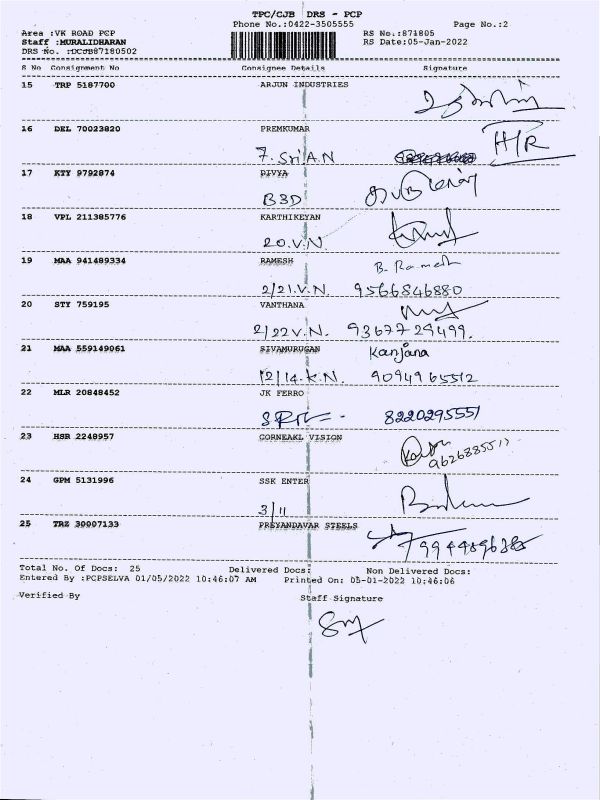 TPC/CJB DRS - PCP
Phone No.:0422-3505555 Page No.:2
Area :VK ROAD PCP RS No.:871805
Staff :MURALIDHARAN RS Date:05-Jan-2022
DRS No. :DCJB87180502
S No Consignment No Consignee Details Signature
15 TRP 5187700 ARJUN INDUSTRIES
16 DEL 70023820 PREMKUMAR
7. Sri A.N H/R
17 KTY 9792874 DIVYA
B3D
18 VPL 211385776 KARTHIKEYAN
20.V.N.
19 MAA 941489334 RAMESH B. Ramesh
2/21.V.N. 9566846880
20 STY 759195 VANTHANA
2/22V.N. 9367729499.
21 MAA 559149061 SIVAMURUGAN Kanjana
12/14.K.N. 9094965512
22 MLR 20848452 JK FERRO
8220295551
23 HSR 2248957 CORNEAKL VISION
24 GPM 5131996 SSK ENTER
3/11
25 TRZ 30007133 PREYANDAVAR STEELS
Total No. Of Docs: 25 Delivered Docs: Non Delivered Docs:
Entered By :PCPSELVA 01/05/2022 10:46:07 AM Printed On: 05-01-2022 10:46:06
Verified By Staff Signature